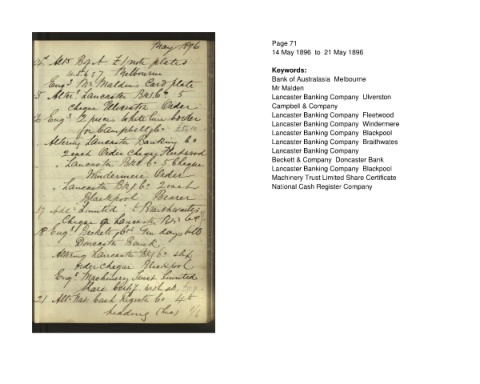 May 1896
£1 note plates
Melbourne
Engd Mr Malden's Card plate
Lancaster Bkg Co 5
cheque Ulverston Order
for Campbell & Co
Altering Lancaster Banking Co
2 each Order Cheque Fleetwood
Lancaster Bkg Co 5 Cheque
Windermere Order
Lancaster Bkg Co 2 each
Blackpool Bearer
Limited to Braithwaites
Cheque Lancaster Bkg Co
18 Engd Becketts & Co Ten days
Doncaster Bank
Altering Lancaster Bkg Co
order cheque Blackpool
Engd Machinery Trust Limited
Share Certif.
21 Alt. Nat. Cash Register Co
heading
Page 71
14 May 1896 to 21 May 1896
Keywords:
Bank of Australasia Melbourne
Mr Malden
Lancaster Banking Company Ulverston
Campbell & Company
Lancaster Banking Company Fleetwood
Lancaster Banking Company Windermere
Lancaster Banking Company Blackpool
Lancaster Banking Company Braithwaites
Lancaster Banking Company
Beckett & Company Doncaster Bank
Lancaster Banking Company Blackpool
Machinery Trust Limited Share Certificate
National Cash Register Company